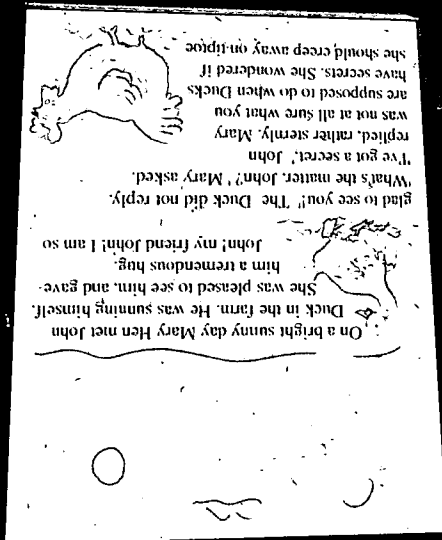 On a bright sunny day Mary Hen met John
Duck in the farm. He was sunning himself.
She was pleased to see him, and gave
him a tremendous hug.
John! my friend John! I am so
glad to see you!' The Duck did not reply.
'What's the matter, John?' Mary asked.
'I've got a secret,' John
replied, rather sternly. Mary
was not at all sure what you
are supposed to do when Ducks
have secrets. She wondered if
she should creep away on tiptoe